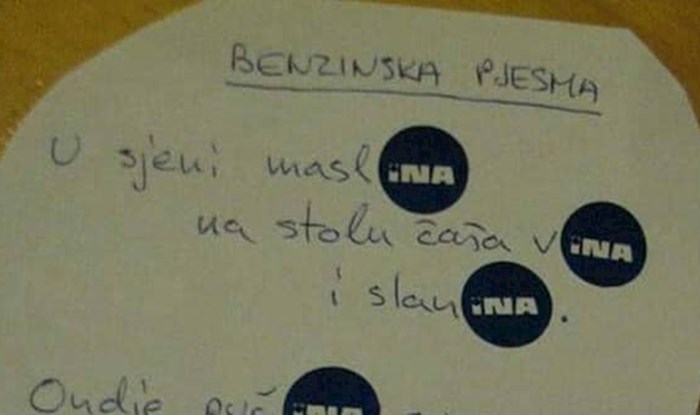 BENZINSKA PJESMA
U sjeni maslINA
na stolu čaša vINA
i slanINA.
Ondje